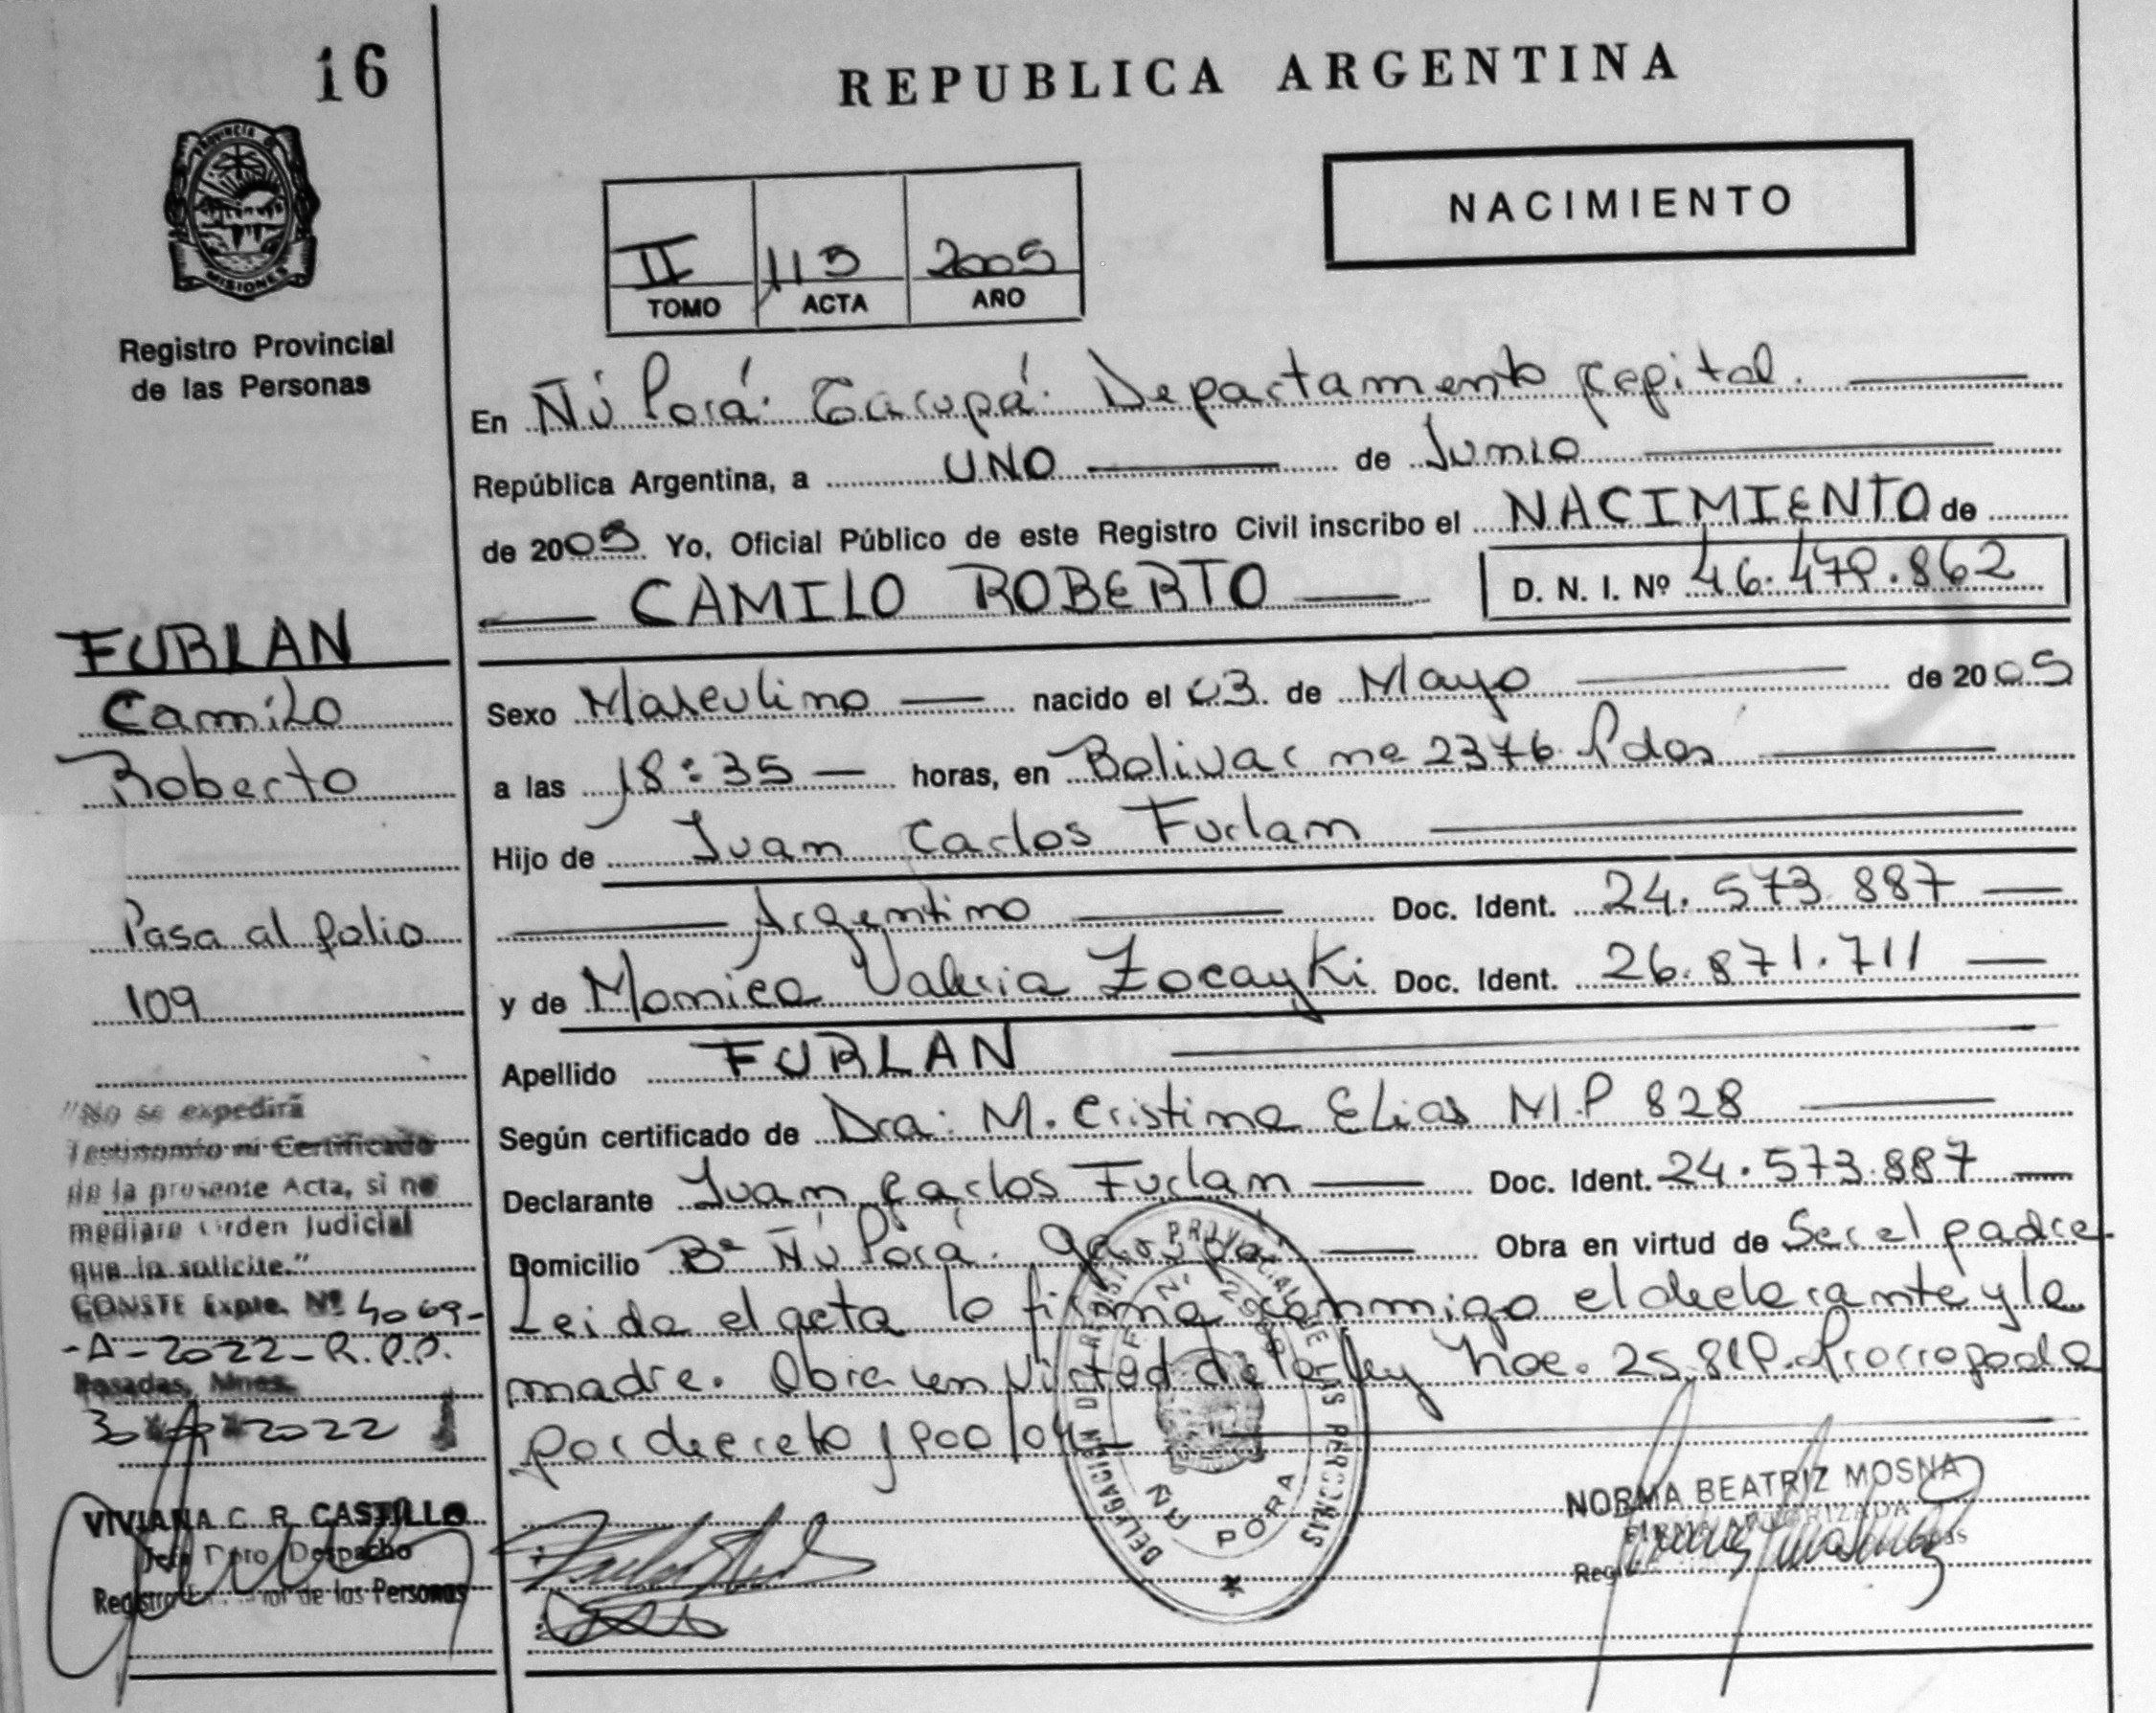 16
REPUBLICA ARGENTINA
NACIMIENTO
PROVINCIA DE
MISIONES
Registro Provincial
de las Personas
II 113 2005
TOMO ACTA AÑO
En Ñú Porá. Garupá. Departamento Capital.
República Argentina, a UNO de Junio
de 2005 Yo, Oficial Público de este Registro Civil inscribo el NACIMIENTO de
CAMILO ROBERTO D. N. I. Nº 46.479.862
FURLAN
Camilo
Roberto
Pasa al folio
109
Sexo Masculino nacido el 03 de Mayo de 2005
a las 18:35 horas, en Bolivar nº 2376 Pdas
Hijo de Juan Carlos Furlan
Argentino Doc. Ident. 24.573.887
y de Monica Valeria Zocayki Doc. Ident. 26.871.711
Apellido FURLAN
Según certificado de Dra: M. Cristina Elias M.P 828
Declarante Juan Carlos Furlan Doc. Ident. 24.573.887
Domicilio Bº Ñú Porá. Garupá Obra en virtud de Ser el padre
Leida el acta lo firma conmigo el declarante y la
madre. Obra en virtud de la ley nac. 25.819. Prorrogada
por decreto 1900/04
"No se expedirá
Testimonio ni Certificado
de la presente Acta, si no
mediare Orden Judicial
que lo solicite."
CONSTE Expte. Nº 4069-
-A-2022-R.P.P.
Posadas, Mnes.
2022
VIVIANA C. R. CASTILLO
Jefe Dpto. Despacho
Registro de las Personas
DELEGACION DEL REGISTRO PROVINCIAL DE LAS PERSONAS
ÑU PORA
NORMA BEATRIZ MOSNA
FIRMA AUTORIZADA